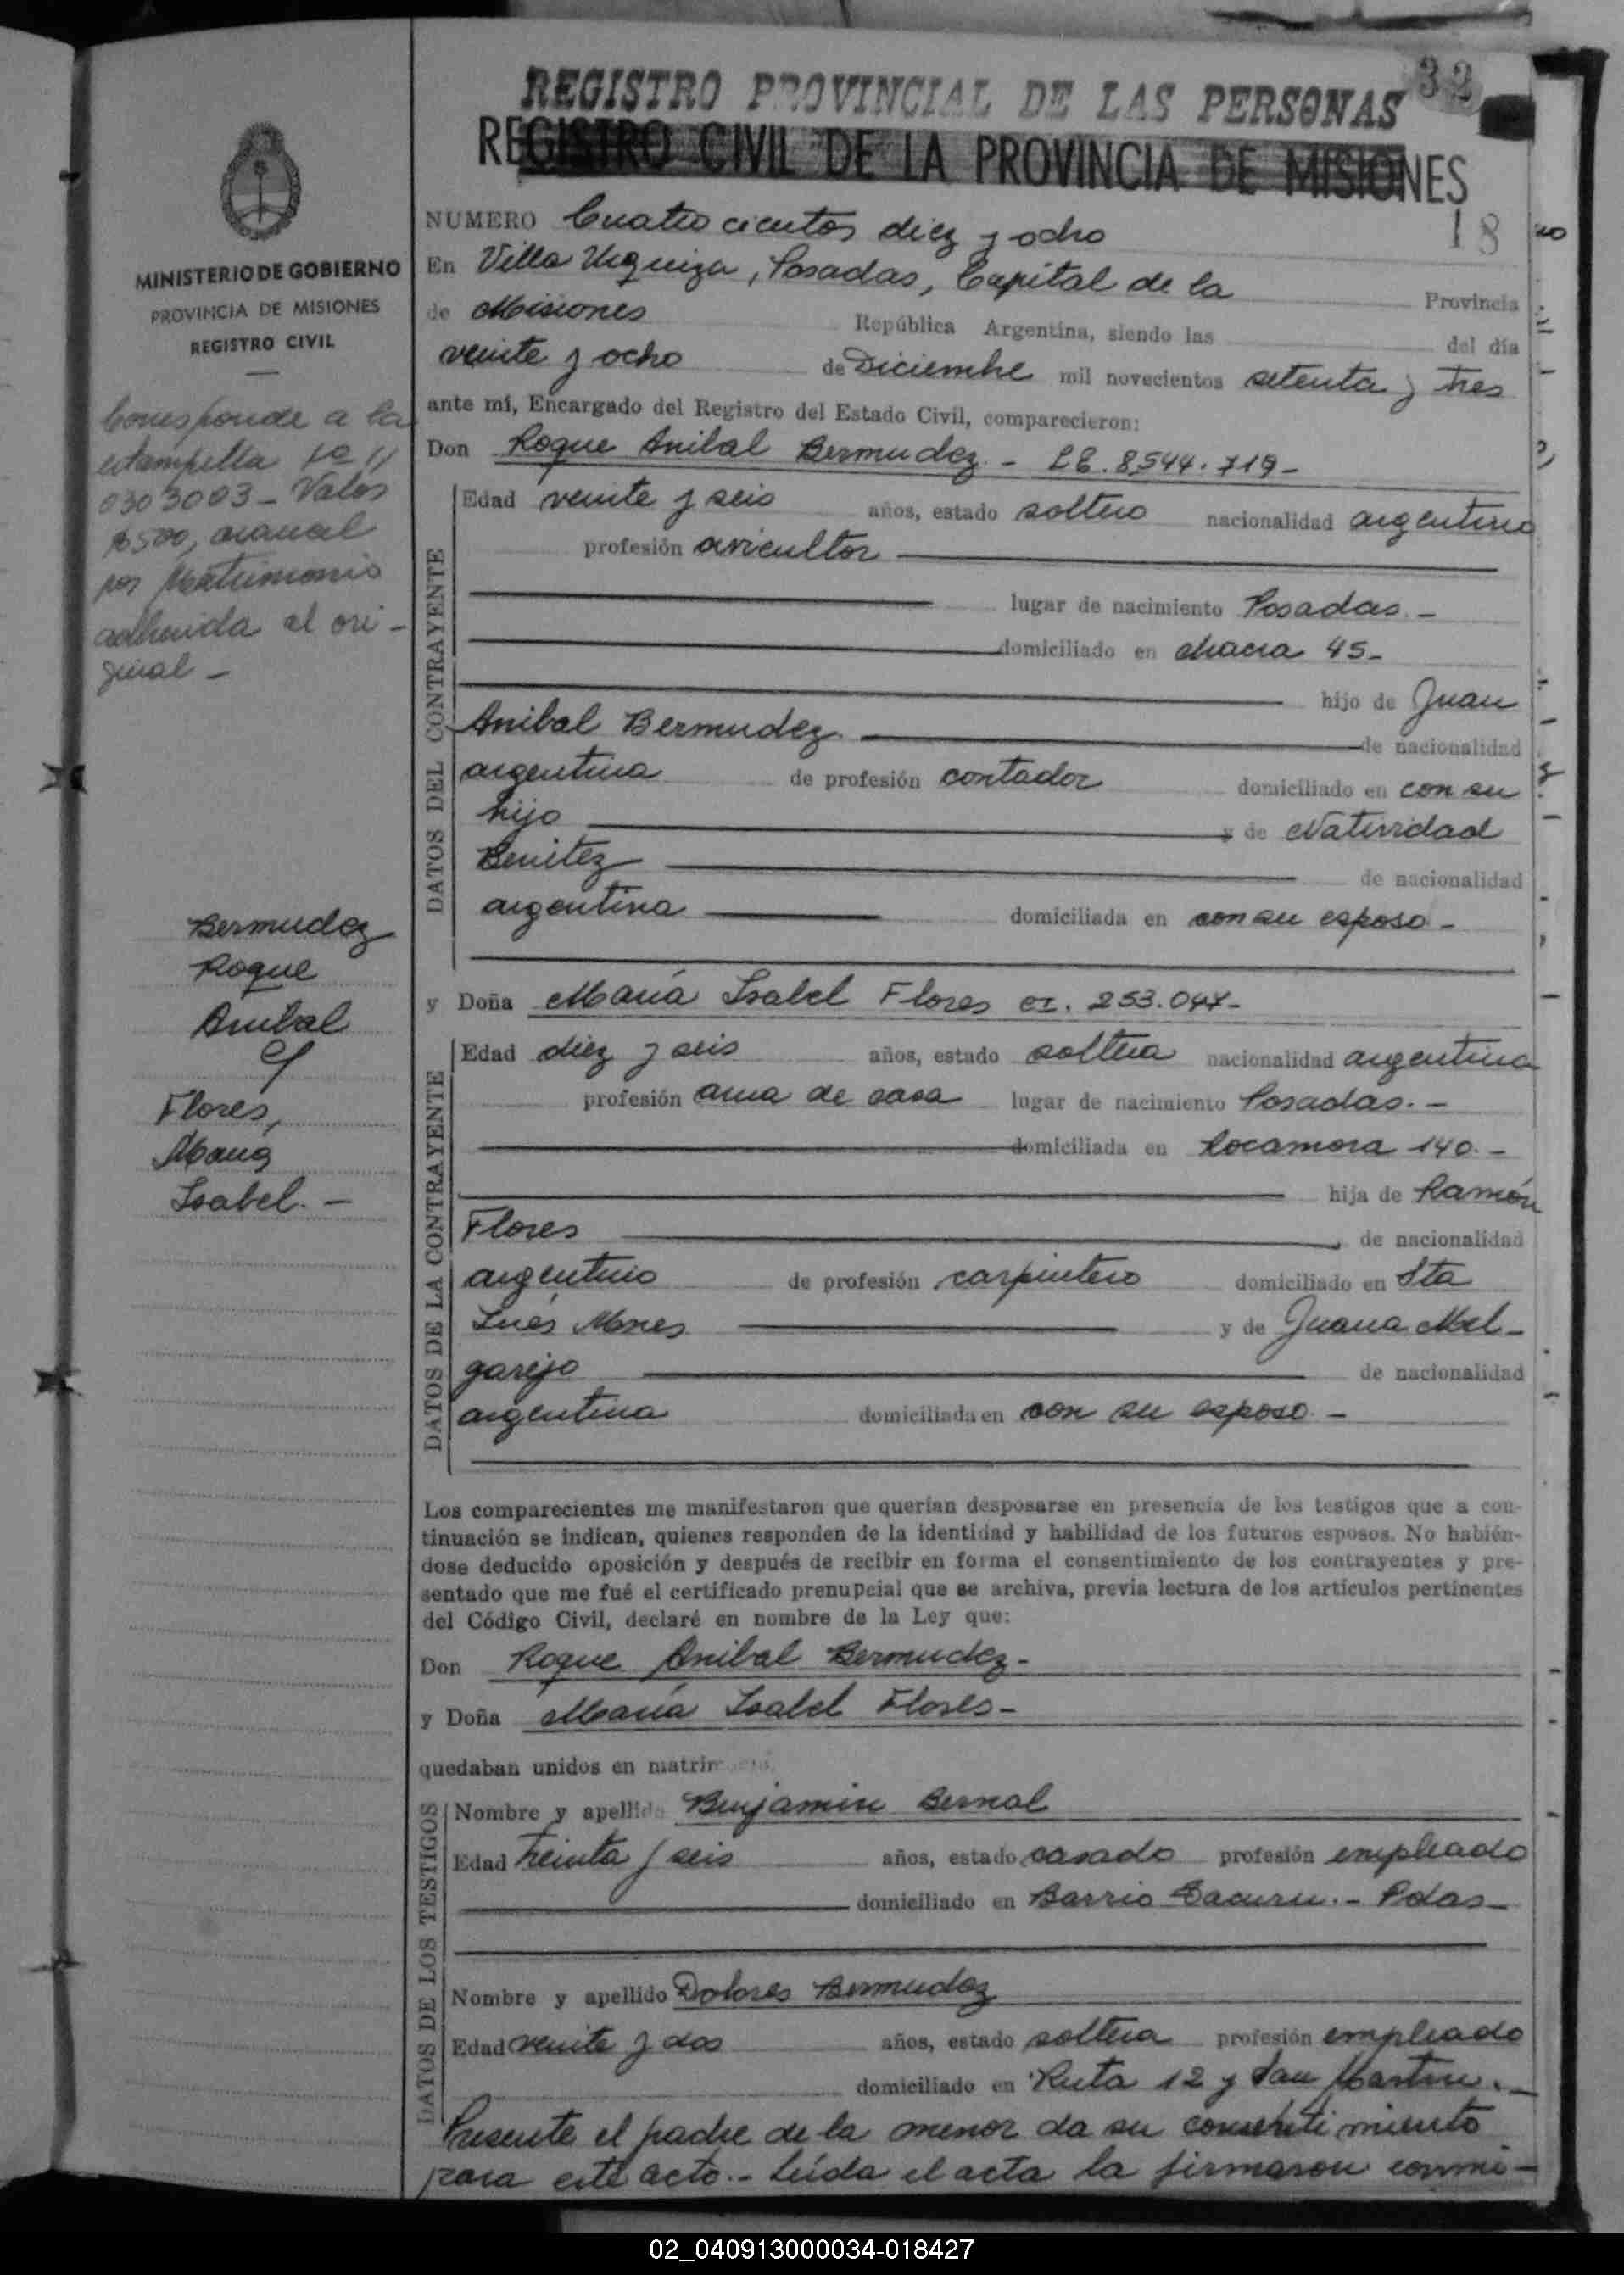 REGISTRO PROVINCIAL DE LAS PERSONAS 32
REGISTRO CIVIL DE LA PROVINCIA DE MISIONES
18
MINISTERIO DE GOBIERNO
PROVINCIA DE MISIONES
REGISTRO CIVIL
Corresponde a la
estampilla
0303003 - Valor
$500, arancel
por Matrimonio
adherida al ori-
ginal -
Bermudez
Roque
Anibal
y
Flores,
María
Isabel. -
NUMERO Cuatro cientos diez y ocho
En Villa Urquiza, Posadas, Capital de la Provincia
de Misiones República Argentina, siendo las del día
veinte y ocho de Diciembre mil novecientos setenta y tres
ante mí, Encargado del Registro del Estado Civil, comparecieron:
Don Roque Anibal Bermudez - LE. 8.544.719 -
DATOS DEL CONTRAYENTE
Edad veinte y seis años, estado soltero nacionalidad argentino
profesión avicultor
lugar de nacimiento Posadas. -
domiciliado en chacra 45 -
hijo de Juan
Anibal Bermudez de nacionalidad
argentina de profesión contador domiciliado en con su
hijo y de Natividad
Benitez de nacionalidad
argentina domiciliada en con su esposo. -
y Doña María Isabel Flores CI. 253.047 -
DATOS DE LA CONTRAYENTE
Edad diez y seis años, estado soltera nacionalidad argentina
profesión ama de casa lugar de nacimiento Posadas. -
domiciliada en Rocamora 140. -
hija de Ramón
Flores de nacionalidad
argentino de profesión carpintero domiciliado en Sta
Inés Mnes y de Juana Mel-
garejo de nacionalidad
argentina domiciliada en con su esposo. -
Los comparecientes me manifestaron que querían desposarse en presencia de los testigos que a con-
tinuación se indican, quienes responden de la identidad y habilidad de los futuros esposos. No habién-
dose deducido oposición y después de recibir en forma el consentimiento de los contrayentes y pre-
sentado que me fué el certificado prenupcial que se archiva, previa lectura de los artículos pertinentes
del Código Civil, declaré en nombre de la Ley que:
Don Roque Anibal Bermudez -
y Doña María Isabel Flores -
quedaban unidos en matrimonio.
DATOS DE LOS TESTIGOS
Nombre y apellido Benjamin Bernal
Edad treinta y seis años, estado casado profesión empleado
domiciliado en Barrio Tacuru. - Pdas -
Nombre y apellido Dolores Bermudez
Edad veinte y dos años, estado soltera profesión empleado
domiciliado en Ruta 12 y San Martin. -
Presente el padre de la menor da su consentimiento
para este acto. - Leída el acta la firmaron conmi-
02_040913000034-018427